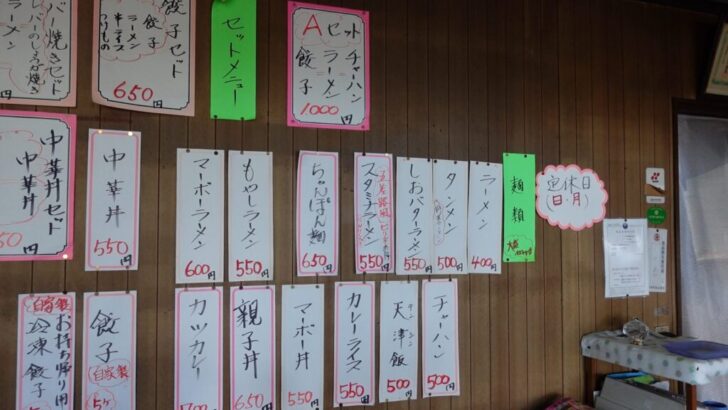 セットメニュー
Aセット
チャーハン
ラーメン
餃子
1000円
餃子セット
ラーメン
餃子
半ライス
つけもの
650円
バー焼きセット
レバーのしょうが焼き
ラーメン
円
定休日
(日・月)
麺類
大盛
ラーメン
400円
タンメン
500円
しおバターラーメン
550円
スタミナラーメン
550円
ちゃんぽん麺
650円
もやしラーメン
550円
マーボーラーメン
600円
中華丼
550円
中華丼セット
中華丼
円
チャーハン
500円
天津飯
テンシン
500円
カレーライス
550円
マーボー丼
550円
親子丼
650円
カツカレー
700円
餃子
自家製
5ヶ
自家製
お持ち帰り用
冷凍餃子